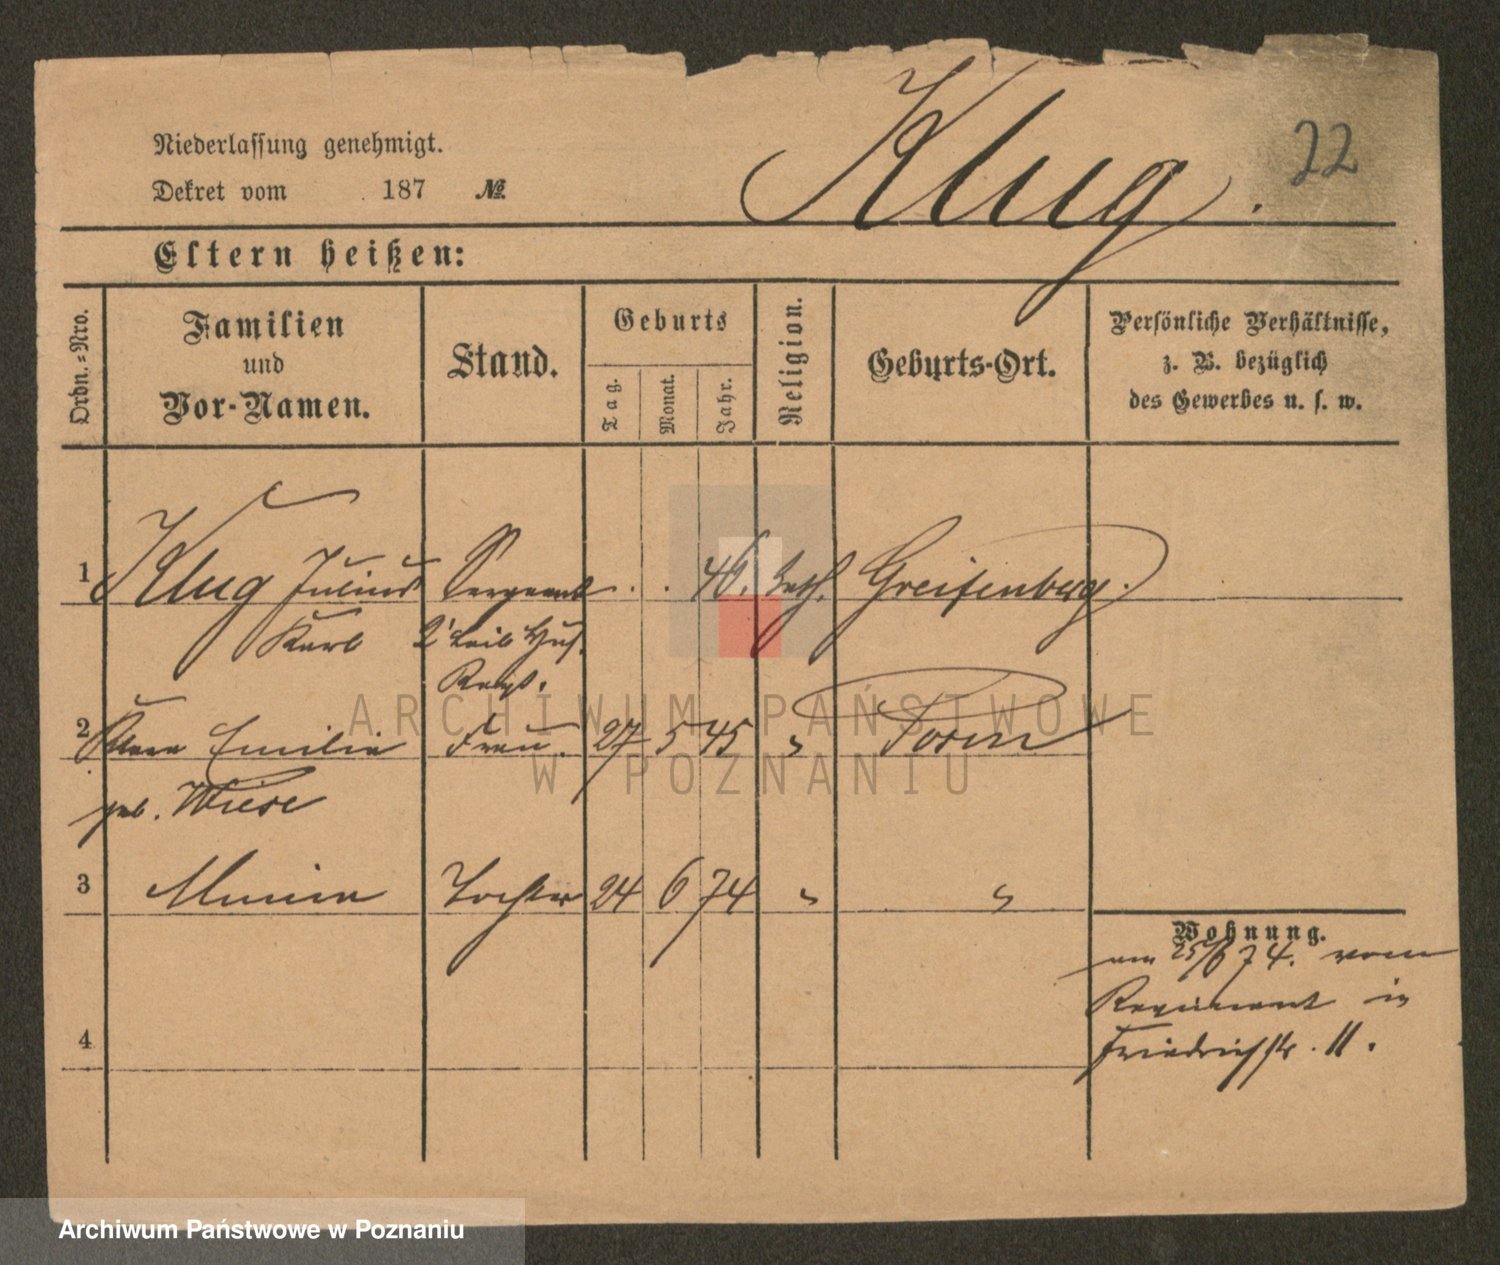 Niederlassung genehmigt.
Dekret vom 187 №
Klug.
22
Eltern heißen:
Ordn.-Nro.
Familien
und
Vor-Namen.
Stand.
Geburts
Tag.
Monat.
Jahr.
Religion.
Geburts-Ort.
Persönliche Verhältnisse,
z. B. bezüglich
des Gewerbes u. s. w.
1 Klug Julius Sergeant . . 46. kath. Greifenberg.
Karl 2' Leib Hus.
Regt.
2 Emilie Frau. 27 5 45 " Posen
geb. Wiese
3 Tochter 24 6 74 " "
Wohnung.
am 25/6 74. vom
Regiment in
Friedrichstr. 11.
4
ARCHIWUM PAŃSTWOWE
W POZNANIU
Archiwum Państwowe w Poznaniu